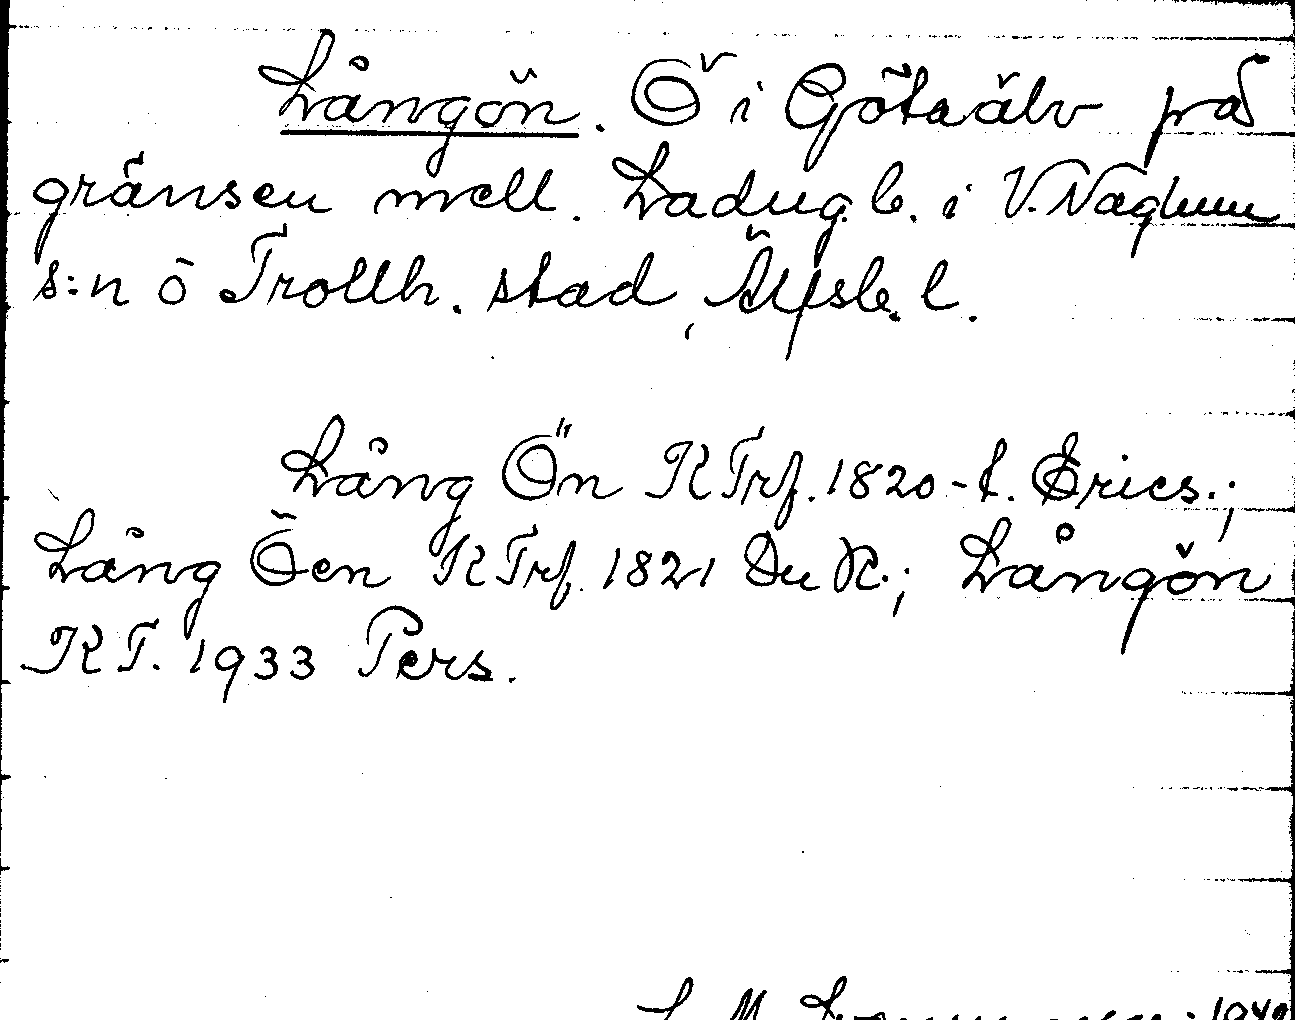 Långön. Ö i Götaälv på
gränsen mell. Ladug.b. i V. Naglum
s:n o Trollh. stad, Älfsb. l.
Lång Ön K Trf. 1820-t. Erics.;
Lång Öen K Trf. 1821 Du R.; Långön
KT. 1933 Pers.